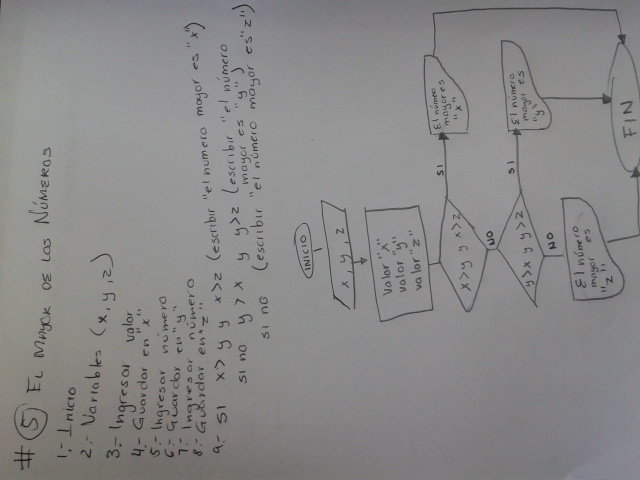 # 5 EL MAYOR DE LOS NÚMEROS
1.- Inicio
2.- Variables (x, y, z)
3.- Ingresar valor
4.- Guardar en "x"
5.- Ingresar número
6.- Guardar en "y"
7.- Ingresar número
8.- Guardar en "z"
9.- SI x>y y x>z (escribir "el numero mayor es "x")
si no y>x y y>z (escribir "el número
mayor es "y")
si no (escribir "el número mayor es "z")
INICIO
x, y, z
Valor "x"
valor "y"
valor "z"
x>y y x>z
SI
El número
mayor es
"x"
NO
y>x y y>z
SI
El número
mayor es
"y"
NO
El número
mayor es
"z"
FIN